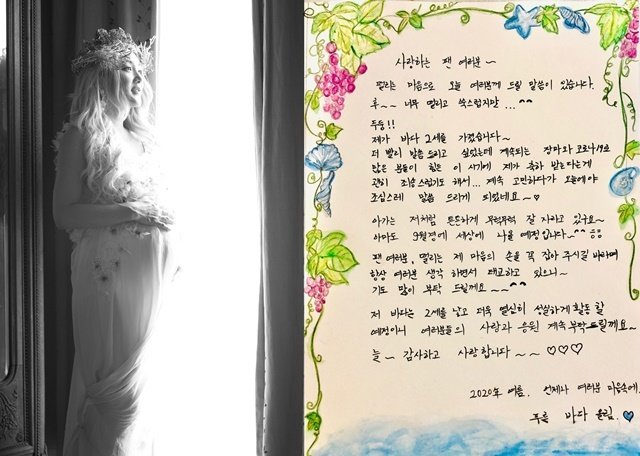 사랑하는 팬 여러분 ~
떨리는 마음으로 오늘 여러분께 드릴 말씀이 있습니다.
후~~ 너무 떨리고 쑥스럽지만 ... ^^
두둥!!
제가 바다 2세를 가졌습니다~
더 빨리 말씀드리고 싶었는데 계속되는 장마와 코로나19로
많은 분들이 힘든 이 시기에 제가 축하 받는다는게
괜히 죄송스럽기도 해서... 계속 고민하다가 오늘에야
조심스레 말씀 드리게 되었네요~♡
아기는 저처럼 튼튼하게 무럭무럭 잘 자라고 있구요~
아마도 9월경에 세상에 나올 예정입니다~^^
팬 여러분, 떨리는 제 마음의 손을 꼭 잡아 주시길 바라며
항상 여러분 생각 하면서 태교하고 있으니~
기도 많이 부탁 드릴께요 ~~^^
저 바다는 2세를 낳고 더욱 열심히 성실하게 활동 할
예정이니 여러분들의 사랑과 응원 계속 부탁드릴께요~
늘~ 감사하고 사랑합니다~~ ♡♡♡
2020年 여름. 언제나 여러분 마음속에.
푸를 바다 올림. ♡